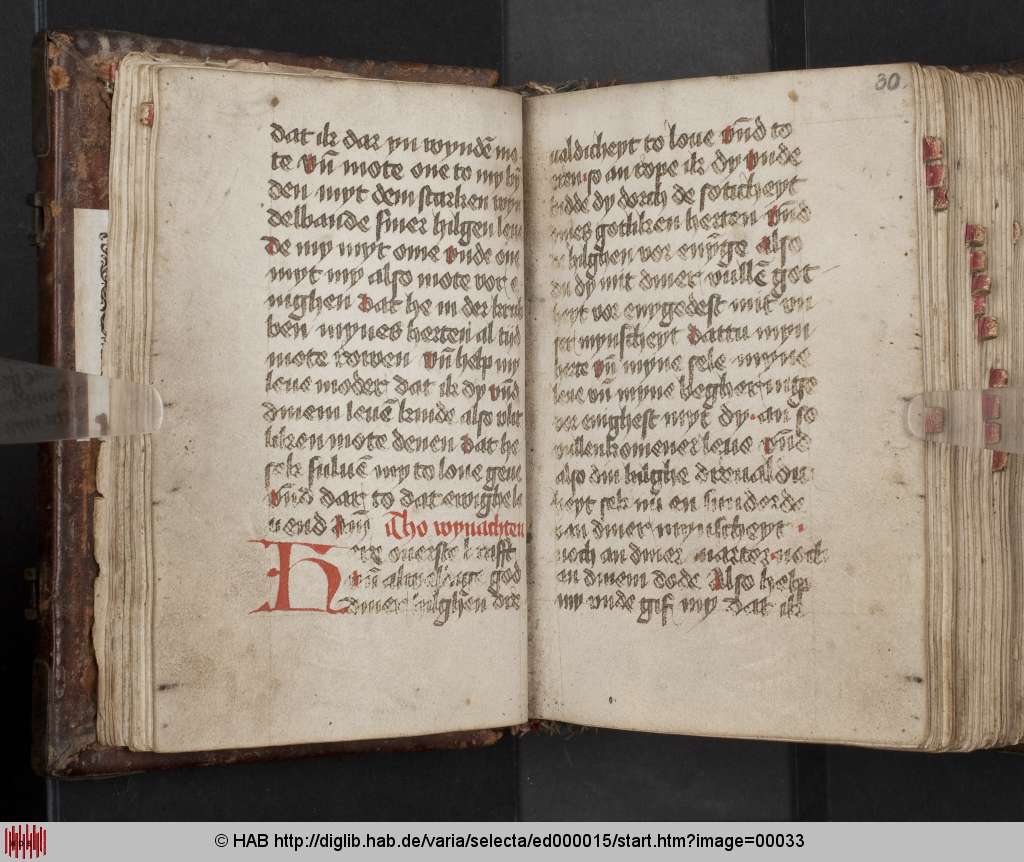 dat ik dar yn wynde̅ mo
te Vn̅ mote one to my by̅
den myt dem starken wyn
delbande siner hilgen leue
De my myt ome vnde one
myt my also mote vor e
nighen Dat he in der kribb
ben mynes herten al tijd
mote rowen Vn̅ help my
leue moder dat ik dy vn̅d
dinem leue̅ kinde also vlit
liken mote denen Dat he
sek sulue̅ my to lone geue
Vn̅d dar to dat ewighe le
uend Am̅
Tho wynachten
Here ouerste krafft
vn̅ almechtige god
diner hilghe̅n dre
30
ualdicheyt to loue Vn̅d to
eren so an rope ik dy Vnde
bidde dy dorch de soticheyt
dines gotliken herten Vn̅d
de hilghen vor eny̅ge Also
du dy mit diner vulle̅ got
heyt vor enygedest mit vn
ser mynscheyt Dattu myn
herte Vn̅ myne sele myne
leue vn̅ myne begher nige
vor eni̅ghest myt dy an so
vullenkomener leue Vn̅de
also din hilghe dreualdi
heyt sek nu̅ en sunderde
van diner mynscheyt
noch an diner martor noch
an dinem dode Also help
my vnde gif my dat ik
© HAB http://diglib.hab.de/varia/selecta/ed000015/start.htm?image=00033